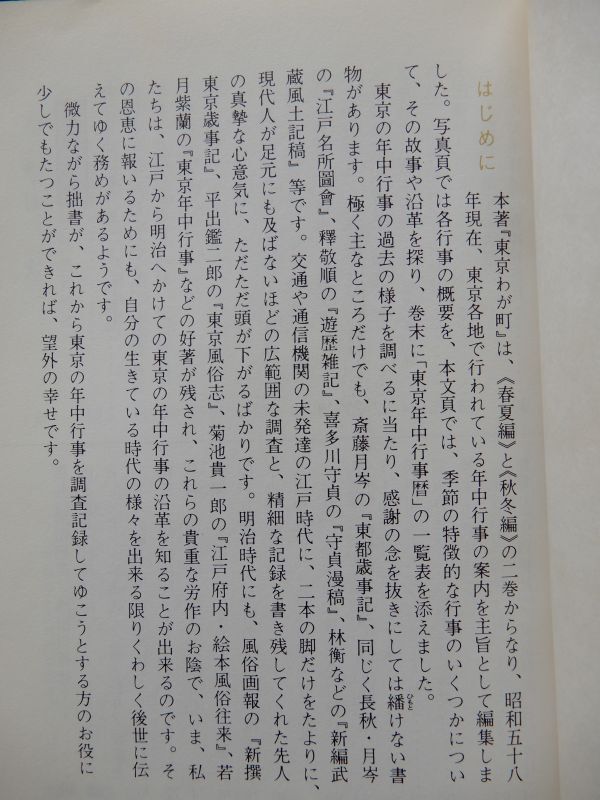 はじめに
本著『東京わが町』は、《春夏編》と《秋冬編》の二巻からなり、昭和五十八
年現在、東京各地で行われている年中行事の案内を主旨として編集しま
した。写真頁では各行事の概要を、本文頁では、季節の特徴的な行事のいくつかについ
て、その故事や沿革を探り、巻末に「東京年中行事暦」の一覧表を添えました。
東京の年中行事の過去の様子を調べるに当たり、感謝の念を抜きにしては繙けない書
物があります。極く主なところだけでも、斎藤月岑の『東都歳事記』、同じく長秋・月岑
の『江戸名所圖會』、釋敬順の『遊歴雑記』、喜多川守貞の『守貞漫稿』、林衡などの『新編武
蔵風土記稿』等です。交通や通信機関の未発達の江戸時代に、二本の脚だけをたよりに、
現代人が足元にも及ばないほどの広範囲な調査と、精細な記録を書き残してくれた先人
の真摯な心意気に、ただただ頭が下がるばかりです。明治時代にも、風俗画報の『新撰
東京歳事記』、平出鑑二郎の『東京風俗志』、菊池貴一郎の『江戸府内・絵本風俗往来』、若
月紫蘭の『東京年中行事』などの好著が残され、これらの貴重な労作のお陰で、いま、私
たちは、江戸から明治へかけての東京の年中行事の沿革を知ることが出来るのです。そ
の恩恵に報いるためにも、自分の生きている時代の様々を出来る限りくわしく後世に伝
えてゆく務めがあるようです。
微力ながら拙書が、これから東京の年中行事を調査記録してゆこうとする方のお役に
少しでもたつことができれば、望外の幸せです。